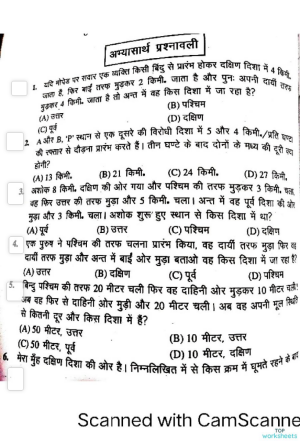 अभ्यासार्थ प्रश्नावली
1. यदि मोपेड पर सवार एक व्यक्ति किसी बिंदु से प्रारंभ होकर दक्षिण दिशा में 4 किमी.
जाता है, फिर बाईं तरफ मुड़कर 2 किमी. जाता है और पुनः अपनी दायीं तरफ
मुड़कर 4 किमी. जाता है तो अन्त में वह किस दिशा में जा रहा है?
(A) उत्तर (B) पश्चिम
(C) पूर्व (D) दक्षिण
2. A और B, 'P' स्थान से एक दूसरे की विरोधी दिशा में 5 और 4 किमी./प्रति घण्टा
की रफ्तार से दौड़ना प्रारंभ करते हैं। तीन घण्टे के बाद दोनों के मध्य की दूरी क्या
होगी?
(A) 13 किमी. (B) 21 किमी. (C) 24 किमी. (D) 27 किमी.
3. अशोक 8 किमी. दक्षिण की ओर गया और पश्चिम की तरफ मुड़कर 3 किमी. चला,
वह फिर उत्तर की तरफ मुड़ा और 5 किमी. चला। अन्त में वह पूर्व दिशा की ओर
मुड़ा और 3 किमी. चला। अशोक शुरू हुए स्थान से किस दिशा में था?
(A) पूर्व (B) उत्तर (C) पश्चिम (D) दक्षिण
4. एक पुरुष ने पश्चिम की तरफ चलना प्रारंभ किया, वह दायीं तरफ मुड़ा फिर वह
दायीं तरफ मुड़ा और अन्त में बाईं ओर मुड़ा बताओ वह किस दिशा में जा रहा है?
(A) उत्तर (B) दक्षिण (C) पूर्व (D) पश्चिम
5. बिन्दु पश्चिम की तरफ 20 मीटर चली फिर वह दाहिनी ओर मुड़कर 10 मीटर चली
अब वह फिर से दाहिनी ओर मुड़ी और 20 मीटर चली। अब वह अपनी मूल स्थिति
से कितनी दूर और किस दिशा में है?
(A) 50 मीटर, उत्तर (B) 10 मीटर, उत्तर
(C) 50 मीटर, पूर्व (D) 10 मीटर, दक्षिण
6. मेरा मुँह दक्षिण दिशा की ओर है। निम्नलिखित में से किस क्रम में घूमते रहने के
Scanned with CamScanne
TOP
worksheets